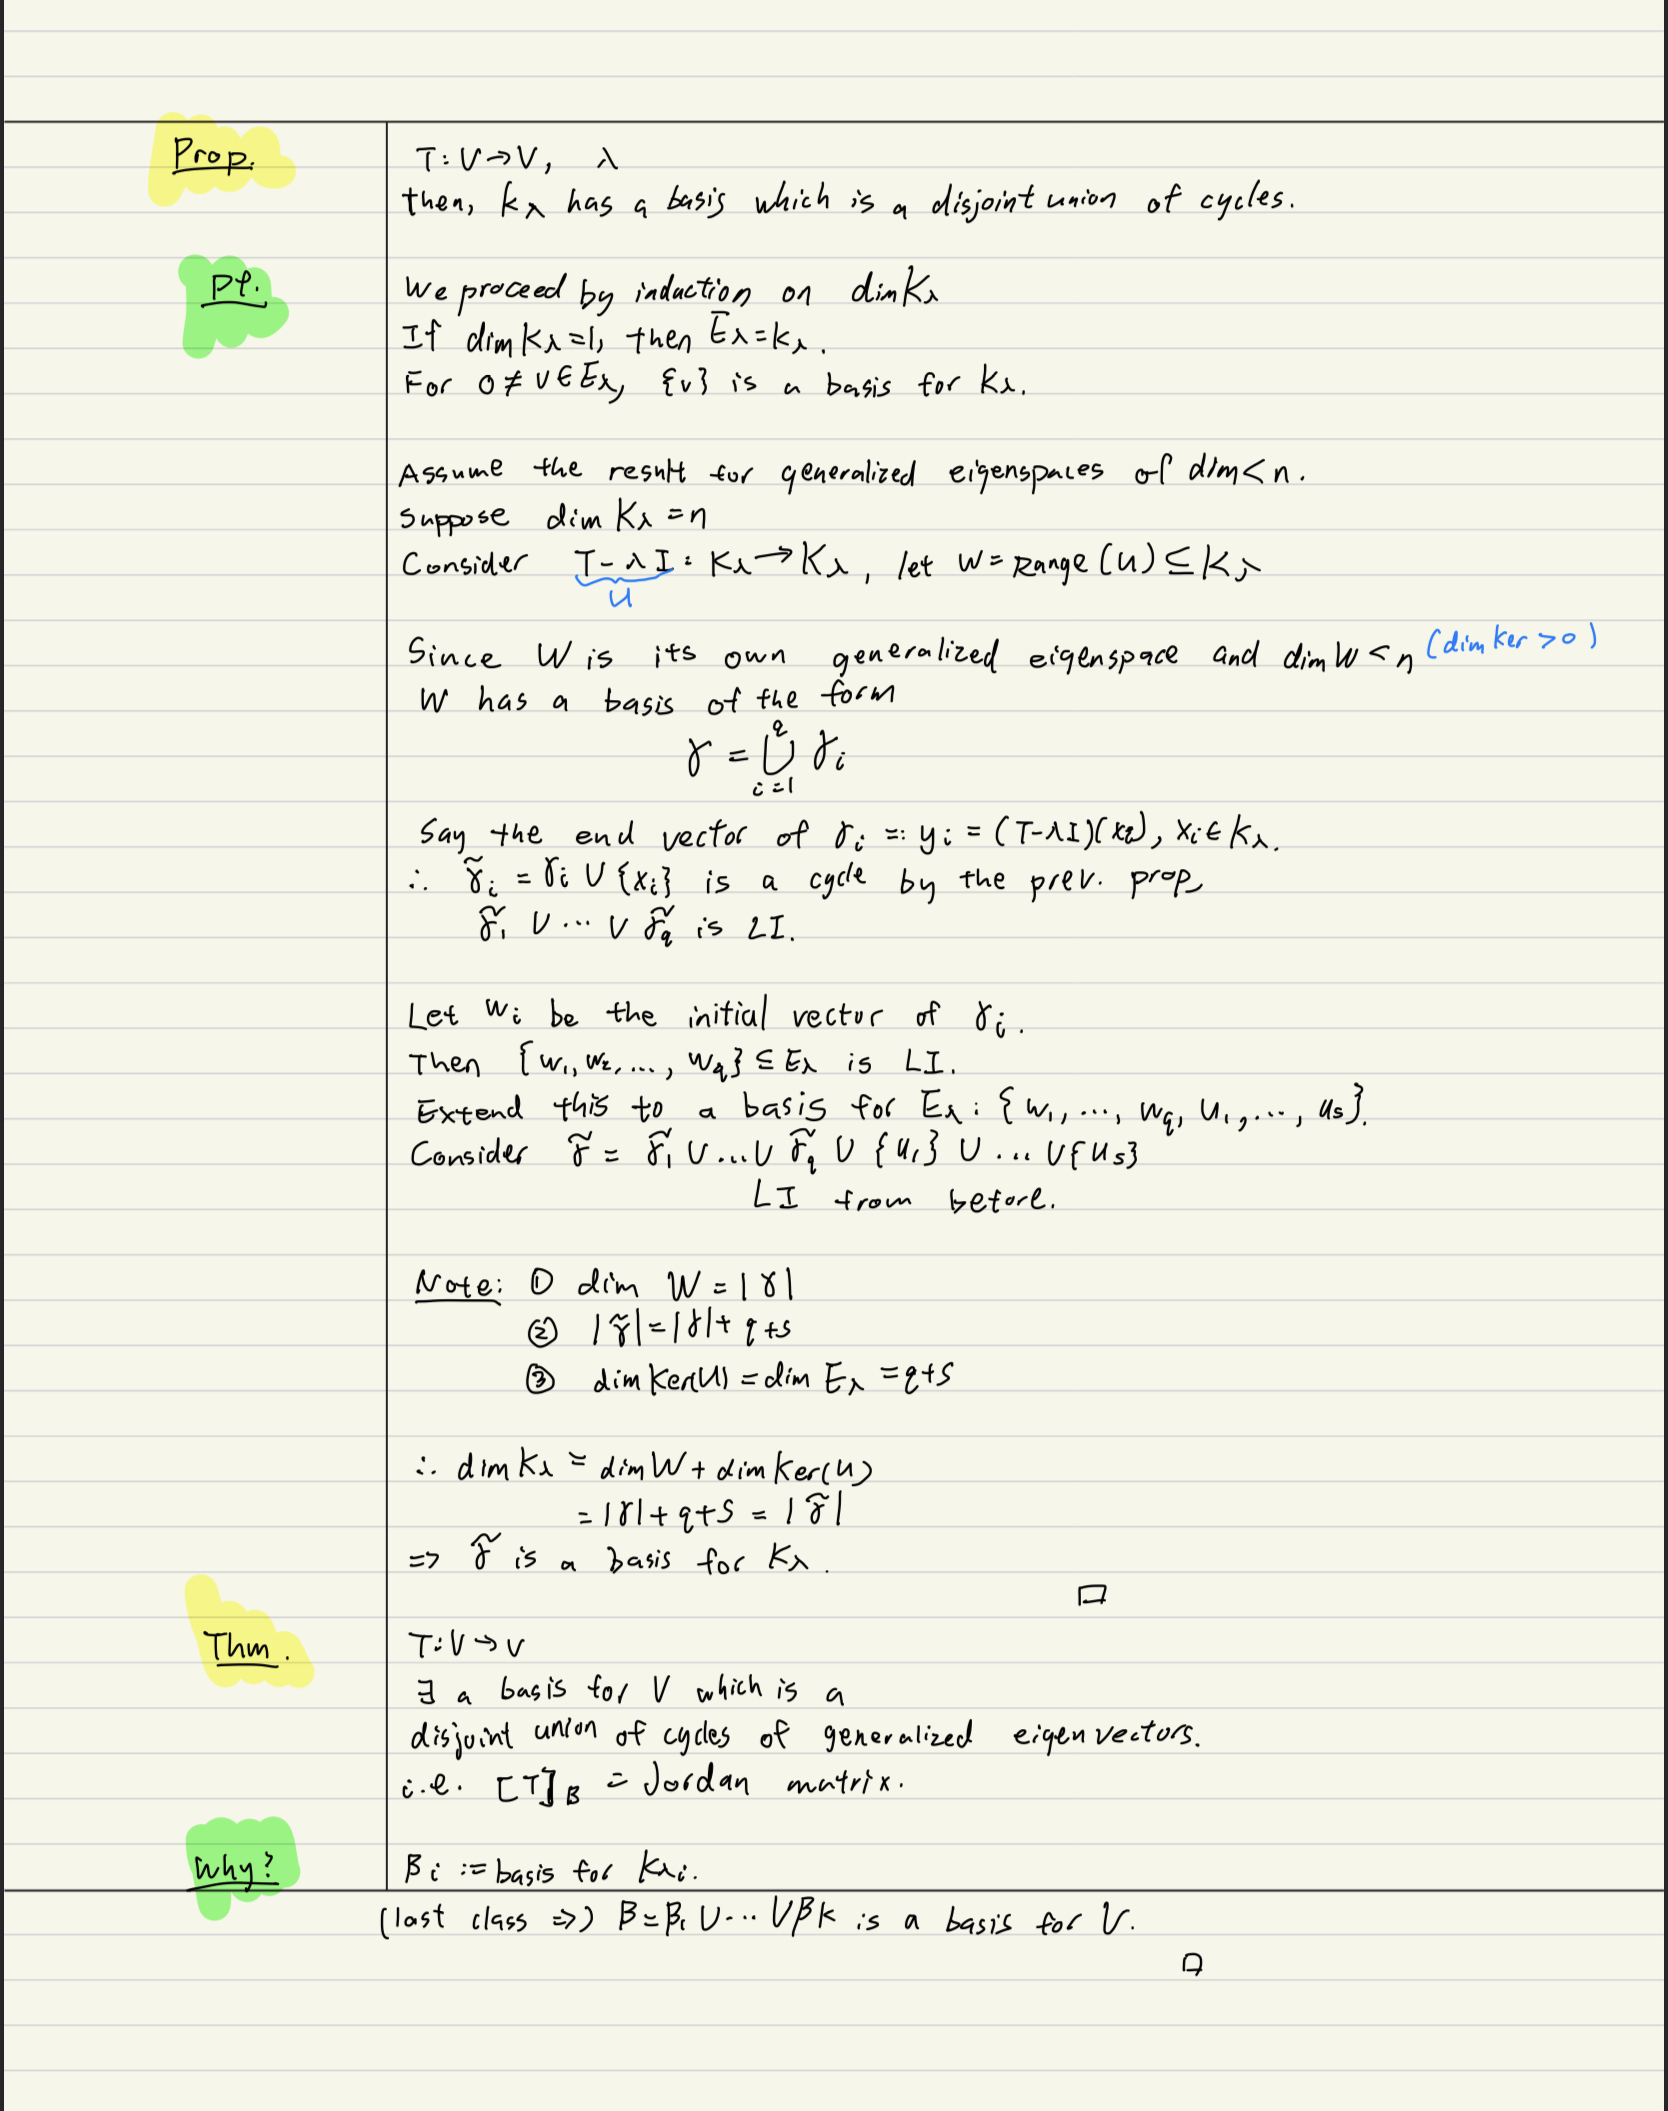 Prop.
T: V→V, λ
then, Kλ has a basis which is a disjoint union of cycles.
Pf.
We proceed by induction on dim Kλ
If dim Kλ=1, then Eλ=Kλ.
For 0≠v∈Eλ, {v} is a basis for Kλ.
Assume the result for generalized eigenspaces of dim<n.
suppose dim Kλ=n
Consider T-λI: Kλ→Kλ, let W=Range(U)⊆Kλ
U
Since W is its own generalized eigenspace and dim W<n (dim ker >0)
W has a basis of the form
γ = ⋃_{i=1}^{q} γi
Say the end vector of γi =: yi = (T-λI)(xi), xi∈Kλ.
∴ γ̃i = γi ∪ {xi} is a cycle by the prev. prop,
γ̃1 ∪ ⋯ ∪ γ̃q is LI.
Let wi be the initial vector of γi.
Then {w1, w2, ..., wq} ⊆ Eλ is LI.
Extend this to a basis for Eλ: {w1, ..., wq, u1, ..., us}.
Consider γ̃ = γ̃1 ∪ ... ∪ γ̃q ∪ {u1} ∪ ... ∪{us}
LI from before.
Note: ① dim W = |γ|
② |γ̃|=|γ|+q+s
③ dim Ker(U) = dim Eλ = q+s
∴ dim Kλ = dim W + dim Ker(U)
= |γ|+q+s = |γ̃|
=> γ̃ is a basis for Kλ.
□
Thm.
T: V→V
∃ a basis for V which is a
disjoint union of cycles of generalized eigenvectors.
i.e. [T]β = Jordan matrix.
Why?
βi := basis for Kλi.
(last class =>) β=β1 ∪ ⋯ ∪βk is a basis for V.
□